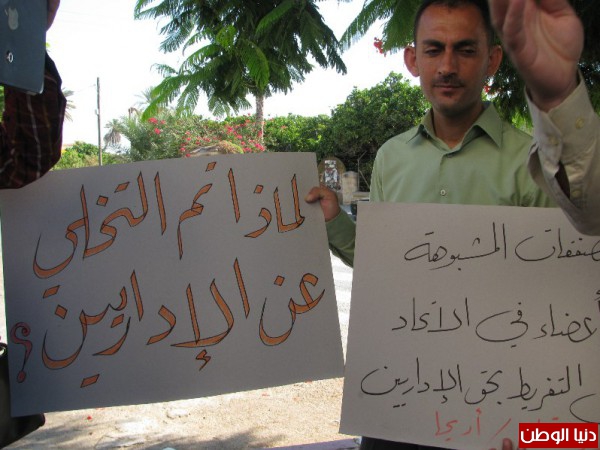 لماذا تم التخلي
عن الإداريين؟
صفقات المشبوهة
أعضاء في الاتحاد
التفريط بحق الإداريين
أريحا
دنيا الوطن